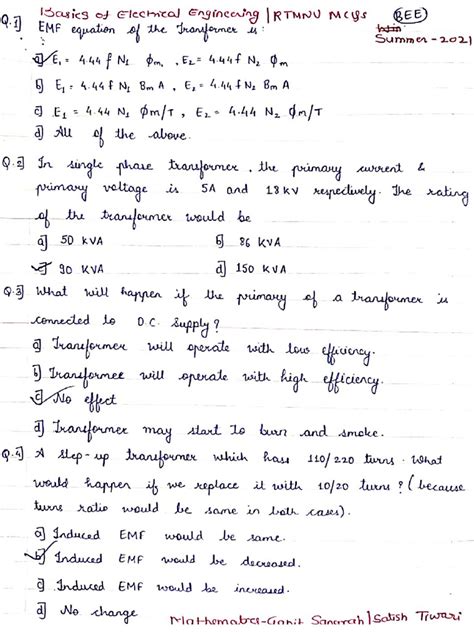 Basics of Electrical Engineering | RTMNU MCQs (BEE)
Summer-2021
Q.1] EMF equation of the Transformer is:
a] E₁ = 4.44 f N₁ Φm, E₂ = 4.44 f N₂ Φm
b] E₁ = 4.44 f N₁ Bm A, E₂ = 4.44 f N₂ Bm A
c] E₁ = 4.44 N₁ Φm/T, E₂ = 4.44 N₂ Φm/T
d] All of the above.
Q.2] In single phase transformer, the primary current &
primary voltage is 5A and 18KV respectively. The rating
of the transformer would be
a] 50 KVA b] 86 KVA
c] 90 KVA d] 150 KVA
Q.3] What will happen if the primary of a transformer is
connected to D.C. Supply?
a] Transformer will operate with low efficiency.
b] Transformer will operate with high efficiency.
c] No effect
d] Transformer may start to burn and smoke.
Q.4] A step-up transformer which has 110/220 turns. What
would happen if we replace it with 10/20 turns? (because
turns ratio would be same in both cases).
a] Induced EMF would be same.
b] Induced EMF would be decreased.
c] Induced EMF would be increased.
d] No change
Mathematics-Ganit Sangrah | Satish Tiwari